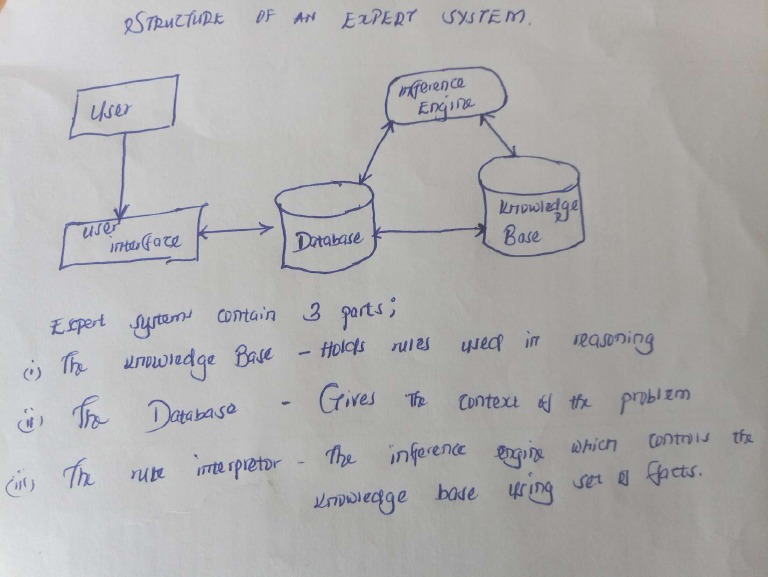 STRUCTURE OF AN EXPERT SYSTEM.
User
Inference
Engine
User
interface
Database
Knowledge
Base
Expert systems contain 3 parts;
(i) The knowledge Base - Holds rules used in reasoning
(ii) The Database - Gives the context of the problem
(iii) The rule interpretor - The inference engine which controls the
knowledge base using set of facts.